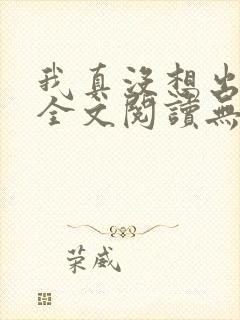 我真没想出
全文閱讀無
荣威